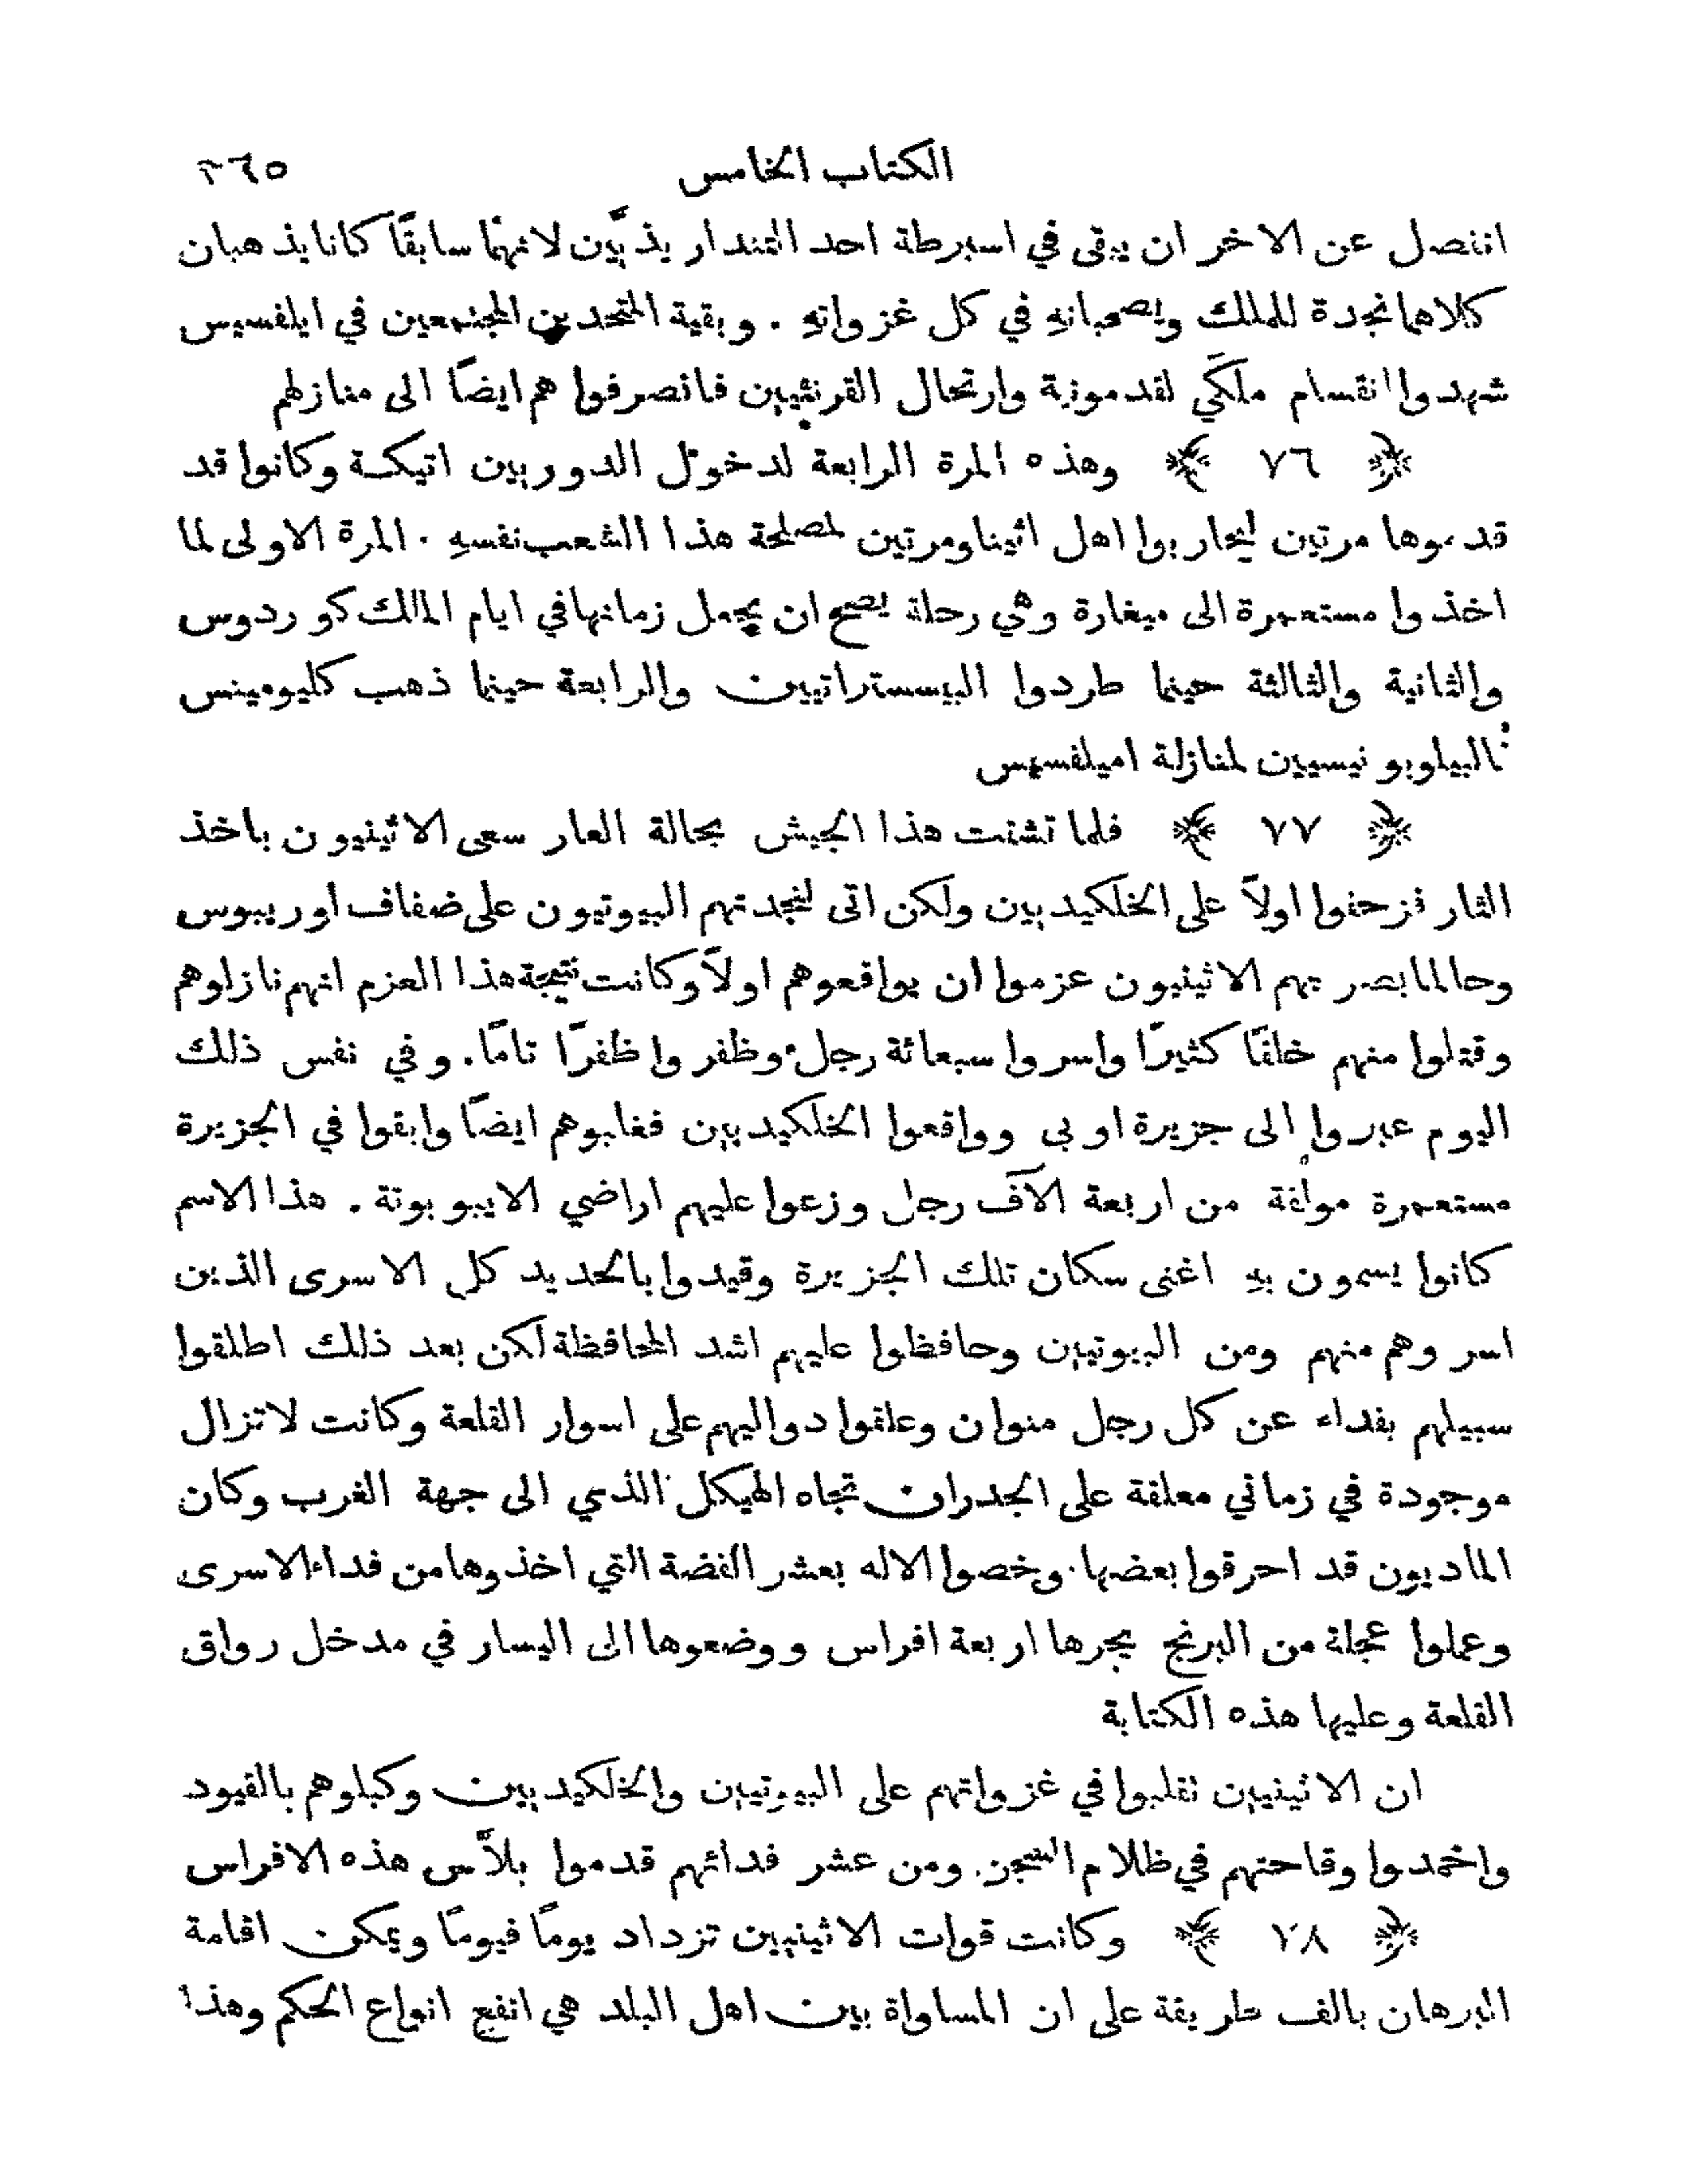 الكتاب الخامس ٣٦٥
انفصل عن الاخر ان يبقى في اسبرطة احد التنداريذيّين لانهما سابقًا كانا يذهبان
كلاهما نجدة للملك ويصحبانهِ في كل غزواتهِ . وبقية المتحدين المجتمعين في ايلفسيس
شهدوا انقسام ملكَي لقدمونية وارتحال القرنثيين فانصرفوا هم ايضًا الى منازلهم
﴿ ٧٦ ﴾ وهذه المرة الرابعة لدخول الدوريين اتيكة وكانوا قد
قدموها مرتين ليحاربوا اهل اثينا ومرتين لمصلحة هذا الشعب نفسهِ . المرة الاولى لما
اخذوا مستعمرة الى ميغارة وهي رحلة يصح ان يجعل زمانها في ايام المالك كوردوس
والثانية والثالثة حينما طردوا البيسستراتيين والرابعة حينما ذهب كليومينس
بالبيلوبونيسيين لمنازلة اميلفسيس
﴿ ٧٧ ﴾ فلما تشتت هذا الجيش بحالة العار سعى الاثينيون باخذ
الثار فزحفوا اولاً على الخلكيديين ولكن اتى لنجدتهم البيوتيون على ضفاف اوريبوس
وحالما بصر بهم الاثينيون عزموا ان يواقعوهم اولاً وكانت نتيجة هذا العزم انهم نازلوهم
وقتلوا منهم خلقًا كثيرًا واسروا سبعمائة رجل وظفروا ظفرًا تامًا . وفي نفس ذلك
اليوم عبروا الى جزيرة اوبى وواقعوا الخلكيديين فغلبوهم ايضًا وابقوا في الجزيرة
مستعمرة مولفة من اربعة الآف رجل وزعوا عليهم اراضي الايبوبوتة . هذا الاسم
كانوا يسمون بهِ اغنى سكان تلك الجزيرة وقيدوا بالحديد كل الاسرى الذين
اسروهم منهم ومن البيوتيين وحافظوا عليهم اشد المحافظة لكن بعد ذلك اطلقوا
سبيلهم بفداء عن كل رجل منوان وعلقوا دواليهم على اسوار القلعة وكانت لا تزال
موجودة في زماني معلقة على الجدران تجاه الهيكل الذي الى جهة الغرب وكان
الماديون قد احرقوا بعضها . وخصوا الاله بعشر الفضة التي اخذوها من فداء الاسرى
وعملوا عجلة من البرنج يجرها اربعة افراس ووضعوها الى اليسار في مدخل رواق
القلعة وعليها هذه الكتابة
ان الاثينيين تغلبوا في غزواتهم على البيوتيين والخلكيديين وكبلوهم بالقيود
واخمدوا وقاحتهم في ظلام السجن . ومن عشر فدائهم قدموا بلاَّس هذه الافراس
﴿ ٧٨ ﴾ وكانت قوات الاثينيين تزداد يومًا فيومًا ويمكن اقامة
البرهان بالف طريقة على ان المساواة بين اهل البلد هي انفع انواع الحكم وهذا